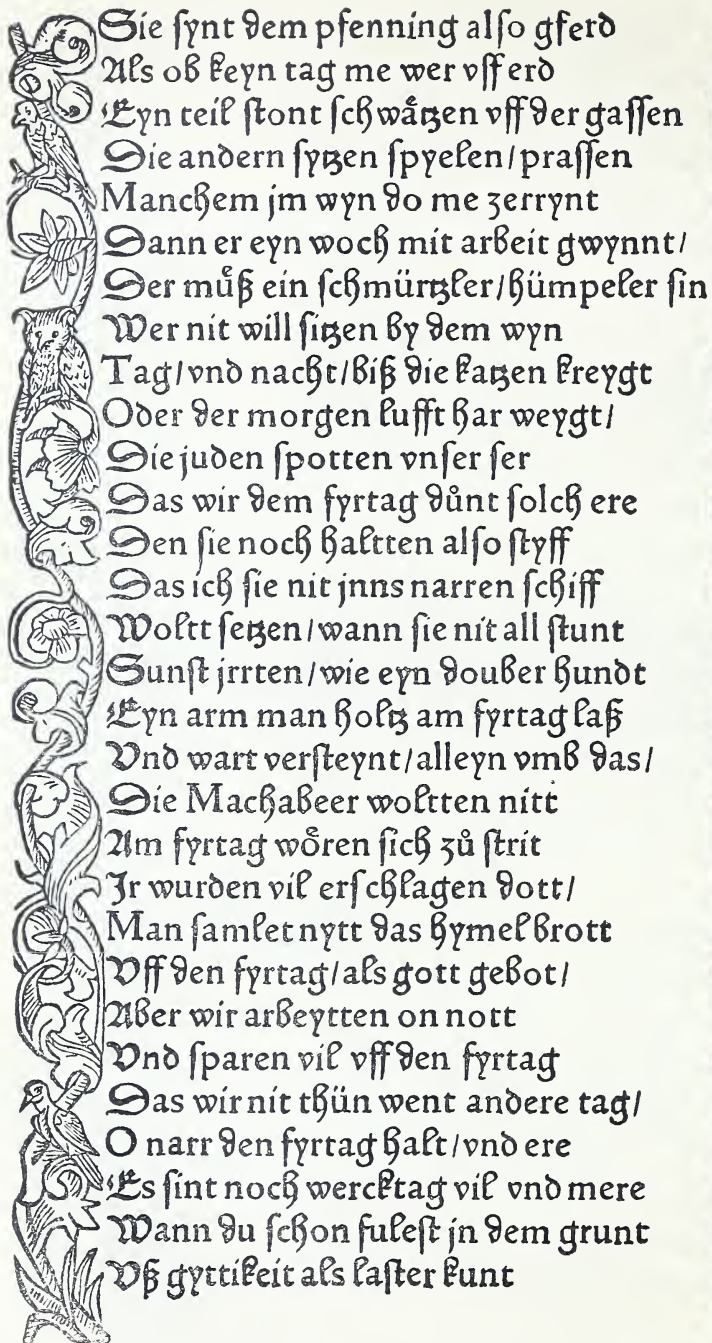 Sie ſynt dem pfenning alſo gferd
Als ob keyn tag me wer vff erd
Eyn teil ſtont ſchwaͤtzen vff der gaſſen
Die andern ſytzen ſpyelen/praſſen
Manchem jm wyn do me zerrynt
Dann er eyn woch mit arbeit gwynnt/
Der muͦß ein ſchmürtzler/hümpeler ſin
Wer nit will ſitzen by dem wyn
Tag/vnd nacht/biß die katzen kreygt
Oder der morgen lufft har weygt/
Die juden ſpotten vnſer ſer
Das wir dem fyrtag duͦnt ſolch ere
Den ſie noch haltten alſo ſtyff
Das ich ſie nit jnns narren ſchiff
Woltt ſetzen/wann ſie nit all ſtunt
Sunſt jrrten/wie eyn douber hundt
Eyn arm man holtz am fyrtag laß
Vnd wart verſteynt/alleyn vmb das/
Die Machabeer woltten nitt
Am fyrtag woͤren ſich zuͦ ſtrit
Jr wurden vil erſchlagen dott/
Man ſamlet nytt das hymelbrott
Vff den fyrtag/als gott gebot/
Aber wir arbeytten on nott
Vnd ſparen vil vff den fyrtag
Das wir nit thün went andere tag/
O narr den fyrtag halt/vnd ere
Es ſint noch wercktag vil vnd mere
Wann du ſchon fuleſt jn dem grunt
Vß gyttikeit als laſter kunt